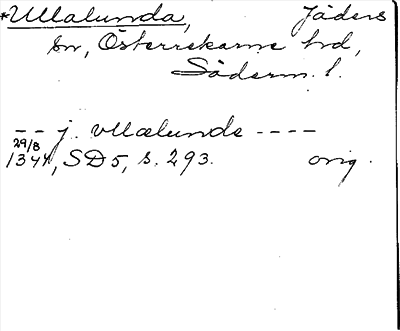 *Ullalunda, Jäders
sn, Österrekarne hrd,
Söderm. l.
-- j. vllælunde ----
29/8
1344, SD5, s. 293. orig.